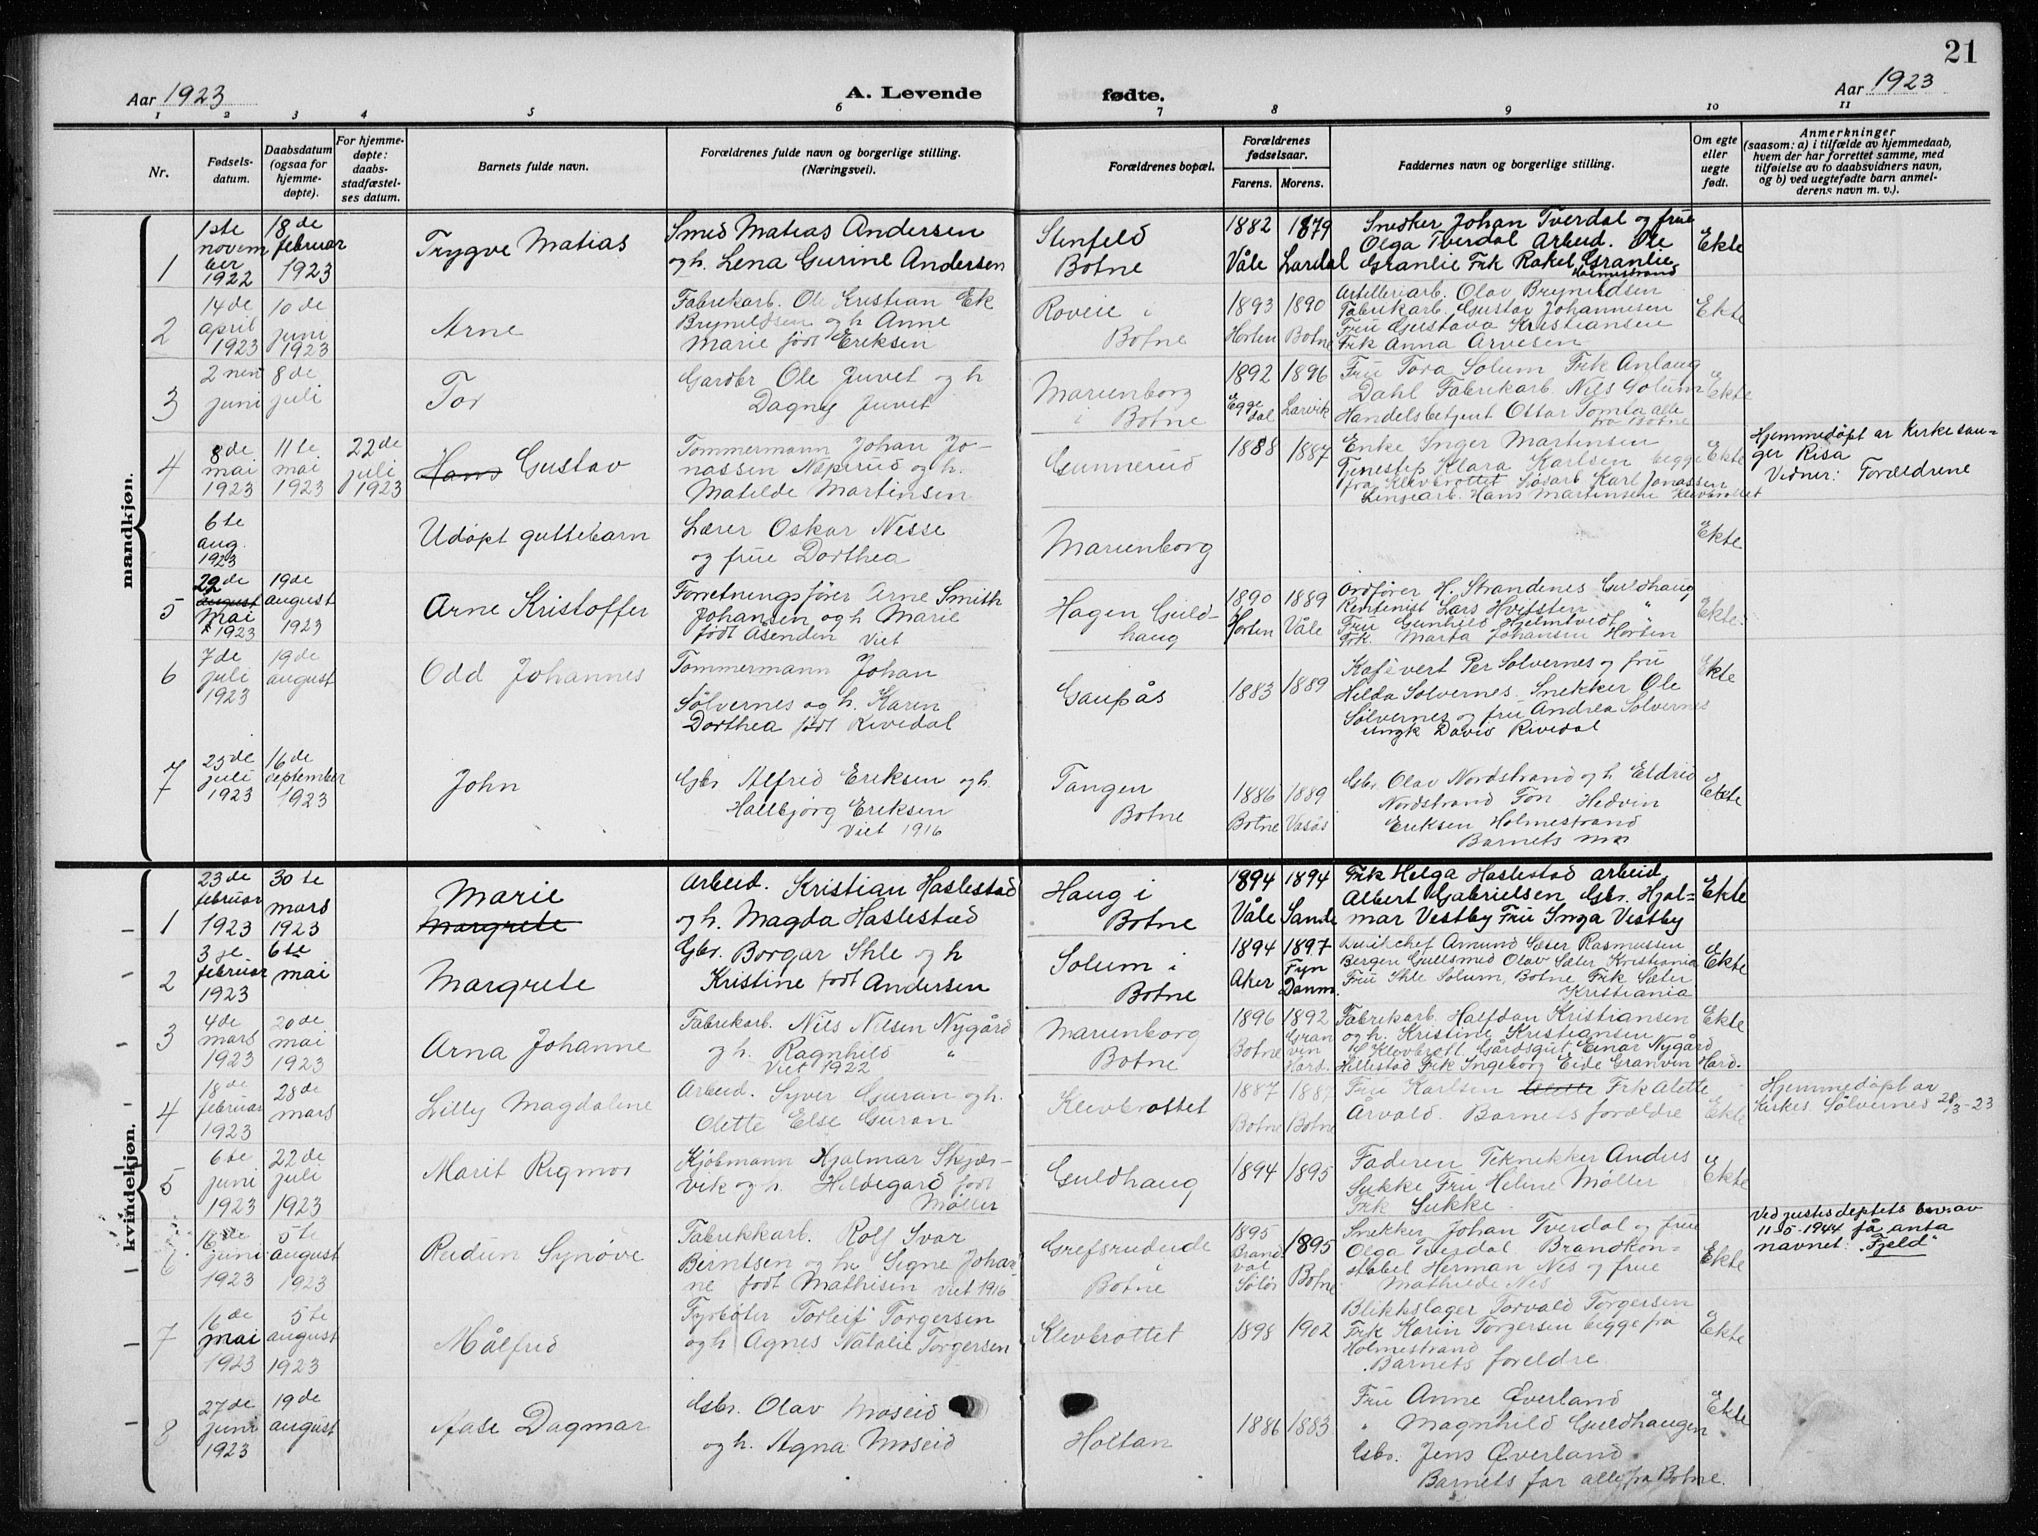 21
Aar 1923
A. Levende
fødte.
Aar 1923
1 2 3 4 5 6 7 8 9 10 11
Nr.
Fødsels-
datum.
Daabsdatum
(ogsaa for
hjemme-
døpte).
For hjemme-
døpte:
daabs-
stadfæstel-
ses datum.
Barnets fulde navn.
Forældrenes fulde navn og borgerlige stilling.
(Næringsvei).
Forældrenes bopæl.
Forældrenes
fødselsaar.
Farens. Morens.
Faddernes navn og borgerlige stilling.
Om egte
eller
uegte
født.
Anmerkninger
(saasom: a) i tilfælde av hjemmedaab,
hvem der har forrettet samme, med
tilføielse av to daabsvidners navn,
og b) ved uegtefødte barn anmel-
derens navn m. v.).
mandkjøn.
1
1ste
novem
ber
1922
18de
februar
1923
Trygve Matias
Smed Matias Andersen
og h. Lena Gurine Andersen
Stenfeld
Botne
1882
Våle
1879
Lardal
Snedker Johan Tverdal og frue
Olga Tverdal Arbeid. Ole
Granlie Frk Rakel Granlie
Holmestrand
Ekte
2
14de
april
1923
10de
juni
1923
Arne
Fabrikarb. Ole Kristian Ek
Brynildsen og h. Anne
Marie født Eriksen
Roveie i
Botne
1893
Horten
1890
Botne
Artilleriarb. Olav Brynildsen
Fabrikarb. Gustav Johannesen
Fru Gustava Kristiansen
Frk Anna Arvesen
Ekte
3
2nen
juni
8de
juli
Tor
Gardbr Ole Juvet og h
Dagny Juvet
Marienborg
i Botne
1892
Egge
dal
1896
Larvik
Fru Tora Solum Frk Anlaug
Dahl Fabrikarb Nils Solum
Handelsbetjent Ottar Tomta alle
fra Botne
Ekte
4
8de
mai
1923
11te
mai
1923
22de
juli
1923
Hans Gustav
Tømmermann Johan Jo-
nassen Næprud og h.
Matilde Martinsen
Gunnerud
1888
1887
Enke Inger Martinsen
Tjenestep Klara Karlsen begge
fra Klevbrottet Løsarb Karl Jonassen
Linjearb. Hans Martinsen Klevbrottet
Ekte
Hjemmedøpt av Kirkesan-
ger Risa
Vidner: Forældrene
6te
aug.
1923
Udøpt guttebarn
Lærer Oskar Nesse
og frue Dorthea
Marienborg
Ekte
5
29de
august
Mai
1923
19de
august
1923
Arne Kristoffer
Forretningsfører Arne Smith
Johansen og h Marie
født Åsenden Viet
Hagen Guld-
haug
1890
Horten
1889
Våle
Ordfører H. Strandenes Guldhaug
Rentenist Lars Hvitsten "
Fru Gunhild Hjelmtvedt "
Frk. Marta Johansen Horten
Ekte
6
7de
juli
1923
19de
august
Odd Johannes
Tømmermann Johan
Sølvernes og h. Karen
Dorthea født Rivedal
Gaupås
1883
1889
Kafevert Per Sølvernes og fru
Hilda Sølvernes. Snekker Ole
Sølvernes og fru Andrea Sølvernes
Ungk David Rivedal
Ekte
7
25de
juli
1923
16de
september
1923
John
Gbr Alfred Eriksen og h.
Hallbjørg Eriksen
Viet 1916
Tangen
Botne
1886
Botne
1889
Vasås
Gbr Olav Nordstrand og h Eldrid
Nordstrand Frn Hedvin
Eriksen Holmestrand
Barnets mor
Ekte
kvindekjøn.
1
23de
februar
1923
30te
mars
1923
Marie
Margrete
Arbeid. Kristian Haslestad
og h. Magda Haslestad
Haug i
Botne
1894
Våle
1894
Sande
Frk Helga Haslestad arbeid
Albert Gabrielsen Gbr. Hjal-
mar Vestby Fru Inga Vestby
Ekte
2
3je
februar
1923
6te
mai
Margrete
Gbr. Borgar Ihle og h
Kristine født Andersen
Solum i
Botne
1894
Aker
1897
Fyn
Danm.
Amund Sæter Rasmussen
Bergen Gullsmed Olav Sæter Kristiania
Fru Ihle Solum, Botne Frk Sæter
Kristiania
Ekte
3
4de
mars
1923
20de
mai
1923
Arna Johanne
Fabrikarb. Nils Nilsen Nygård
og h. Ragnhild "
Viet 1922
Marienborg
Botne
1896
Botne
1892
Gran
vin
Hard.
Fabrikarb. Halfdan Kristiansen
og h. Kristine Kristiansen
Klevbrott Gårdsgut Einar Nygård
Hillestad Frk Ingeborg Eide Granvin Hard.
Ekte
4
18de
februar
1923
28de
mars
Lilly Magdalene
Arbeid. Syver Guran og h.
Olette Else Guran
Klevbrottet
1887
Botne
1887
Botne
Fru Karlsen Alette Frk Alette
Årvold Barnets forældre
Ekte
Hjemmedøpt av
kirkes. Sølvernes 28/3-23
5
6te
juni
1923
22de
juli
1923
Marit Rigmor
Kjøbmann Hjalmar Skjæs-
vik og h. Hildegard født
Møller
Guldhaug
1894
1895
Faderen Teknekker Anders
Sukke Fru Helene Møller
Frk Sukke
Ekte
6
juni
1923
5te
august
1923
Reidun Synøve
Fabrikkarb. Rolf Ivar
Berntsen og h. Signe Johan-
ne født Mathisen viet 1916
Grefsrudeide
Botne
1895
Brand
val
Solør
1895
Botne
Snekker Johan Tverdal og frue
Olga Tverdal Brandkon-
stabel Herman Nes og frue
Mathilde Nes
Ekte
Ved justisdeptets bev. av
11-5-1944 få anta
navnet: "Fjeld"
7
16de
mai
1923
5te
august
1923
Målfrid
Fyrbøter Torleif Torgersen
og h Agnes Natalie Torgersen
Klevbrottet
1898
1902
Blikkslager Torvald Torgersen
Frk Karin Torgersen begge fra
Holmestrand
Barnets foreldre
Ekte
8
27de
juni
1923
19de
august
Aase Dagmar
Gbr. Olav Moseid
og h. Agna Moseid
Holtan
1886
1883
Fru Anne Øverland
" Magnhild Guldhaugen
Gbr. Jens Øverland
Barnets far alle fra Botne.
Ekte